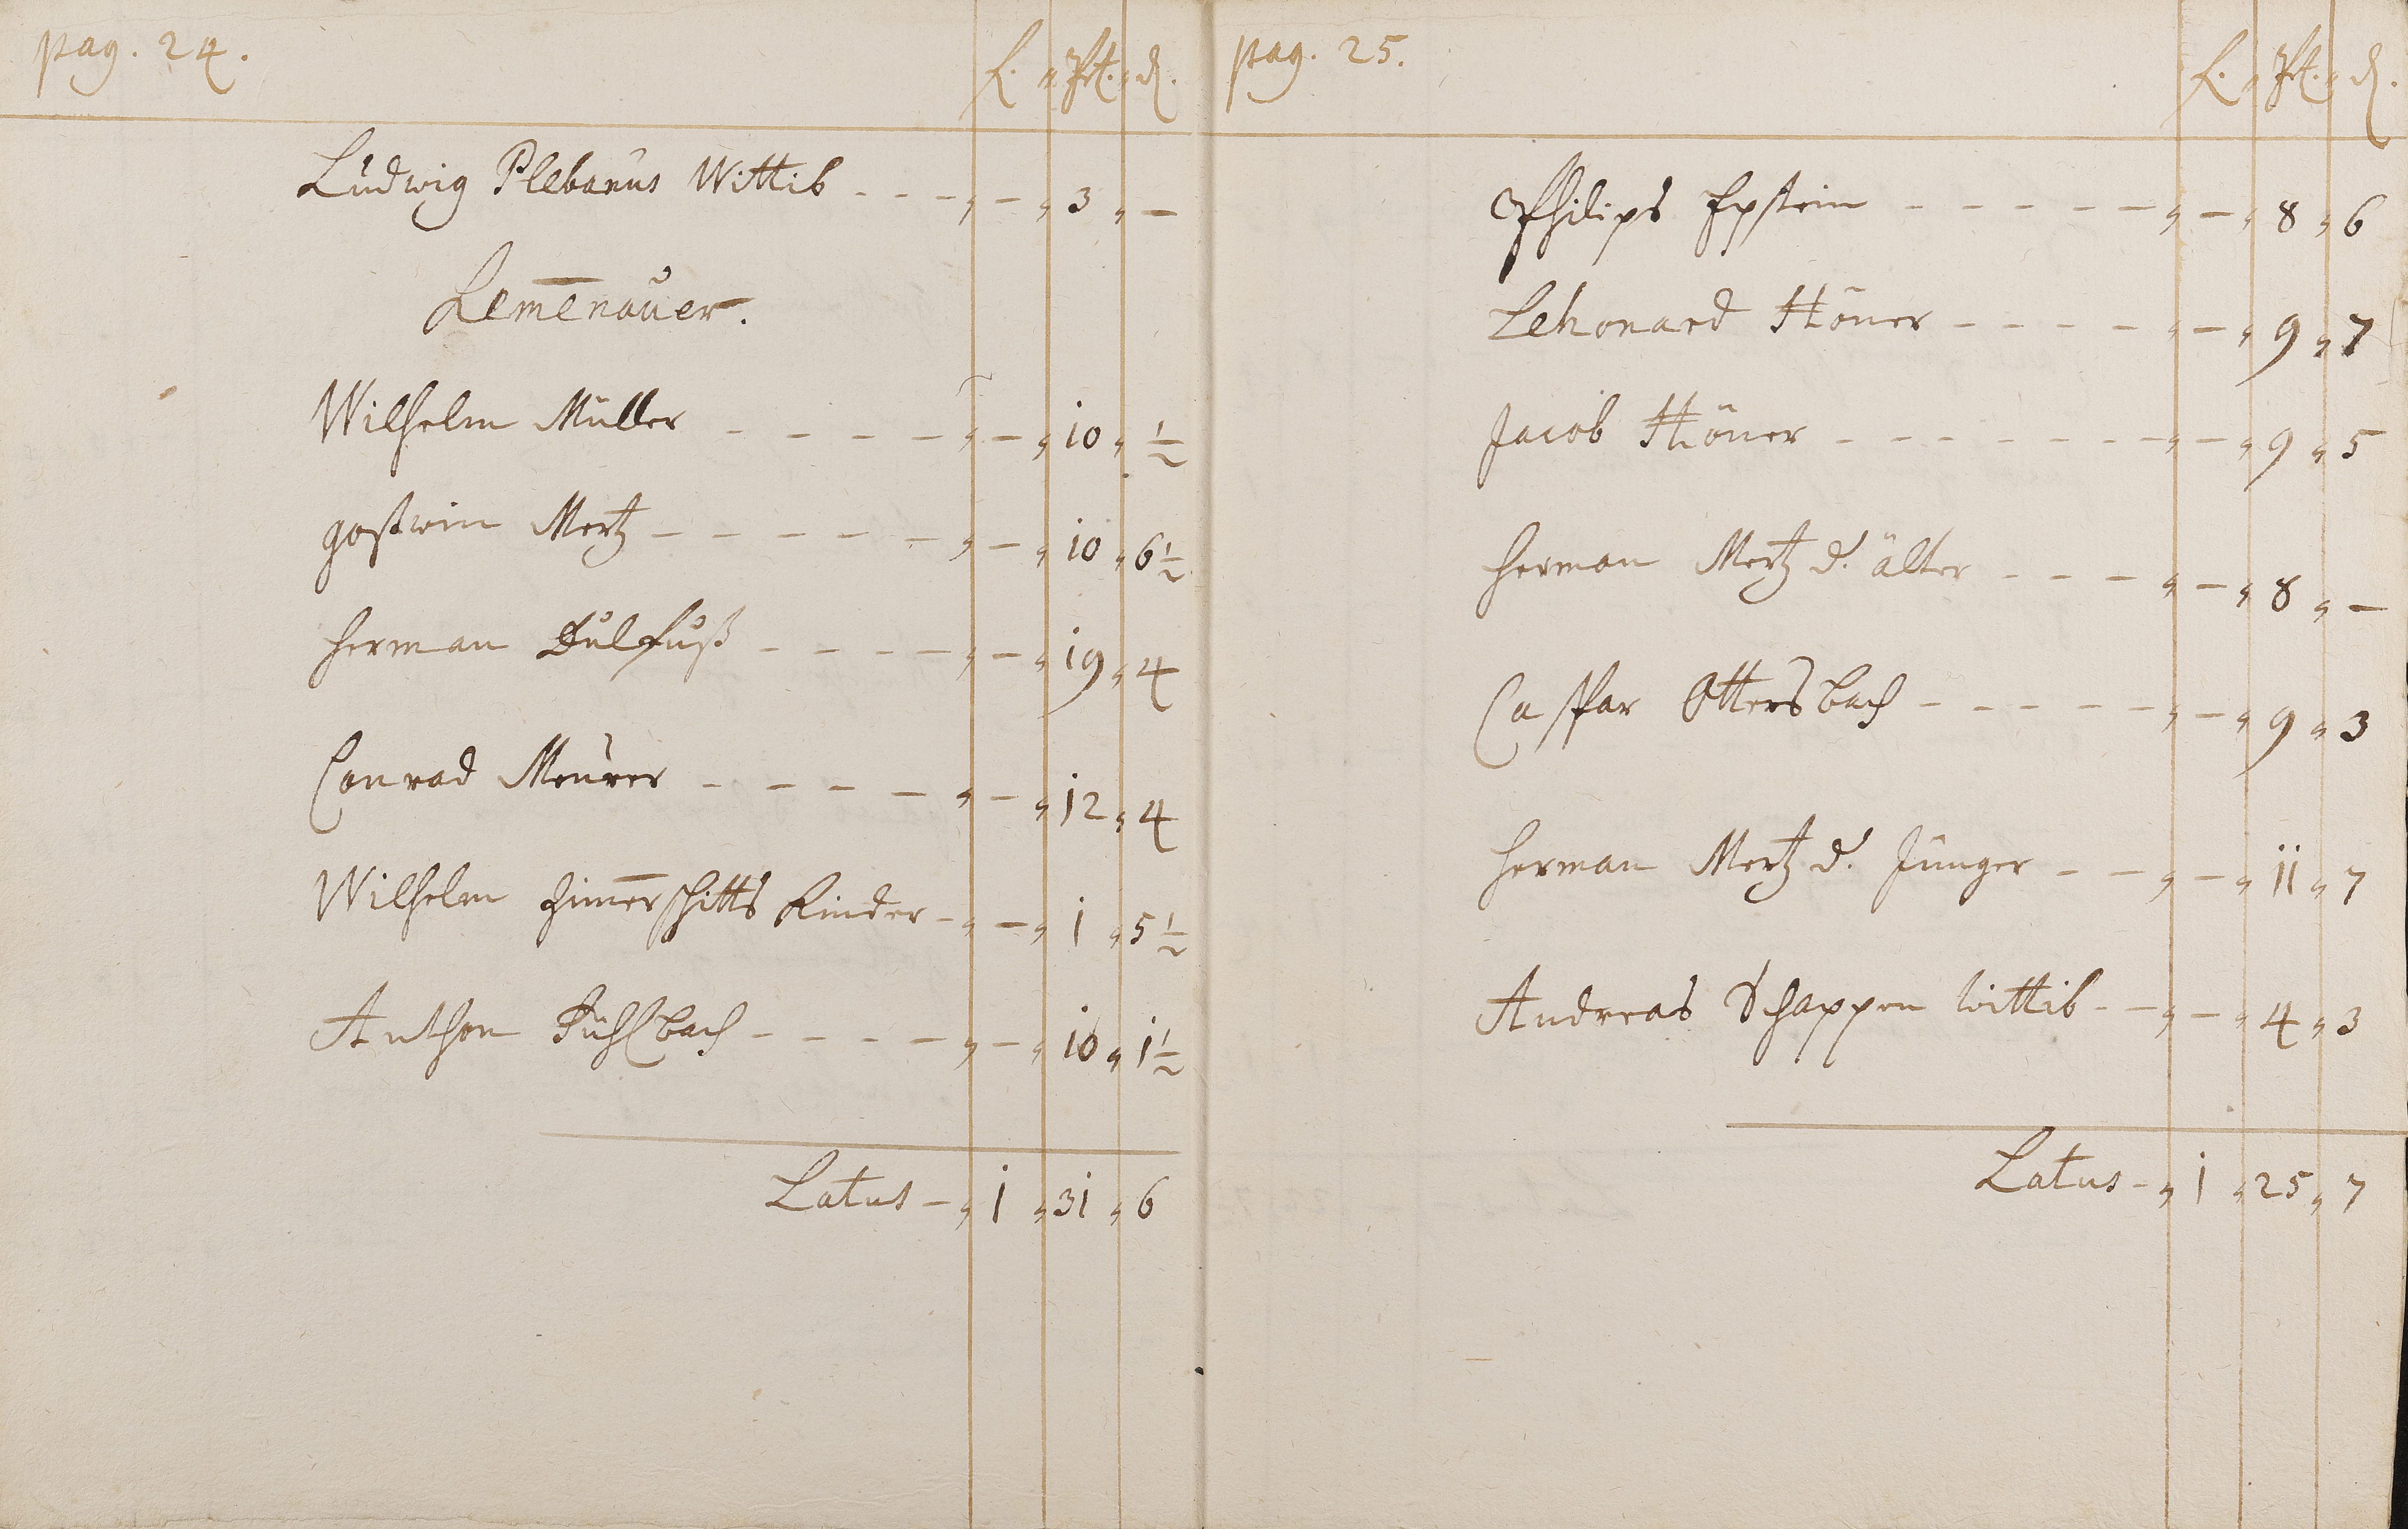 pag. 24.
f. „ xt. „ d.
Ludwig Plebanus Wittib - - - „ - „ 3 „ -
Lem̄enauer.
Wilhelm Müller - - - - „ - „ 10 „ ½
goßwin Mertz - - - - - „ - „ 10 „ 6½
Herman - - - - „ - „ 19 „ 4
Conrad Meurer - - - - „ - „ 12 „ 4
Wilhelm Kinder - „ - „ 1 „ 5½
Anthon - - - - „ - „ 10 „ 1½
Latus - „ 1 „ 31 „ 6
pag. 25.
f. „ xt. „ d.
Philips Epstein - - - - - „ - „ 8 „ 6
Lehonard Höner - - - - „ - „ 9 „ 7
Jacob Höner - - - - - - „ - „ 9 „ 5
Herman Mertz d. älter - - - „ - „ 8 „ -
Caspar Ottersbach - - - - - „ - „ 9 „ 3
Herman Mertz d. Junger - - „ - „ 11 „ 7
Andreas Schappen wittib - - „ - „ 4 „ 3
Latus - „ 1 „ 25 „ 7